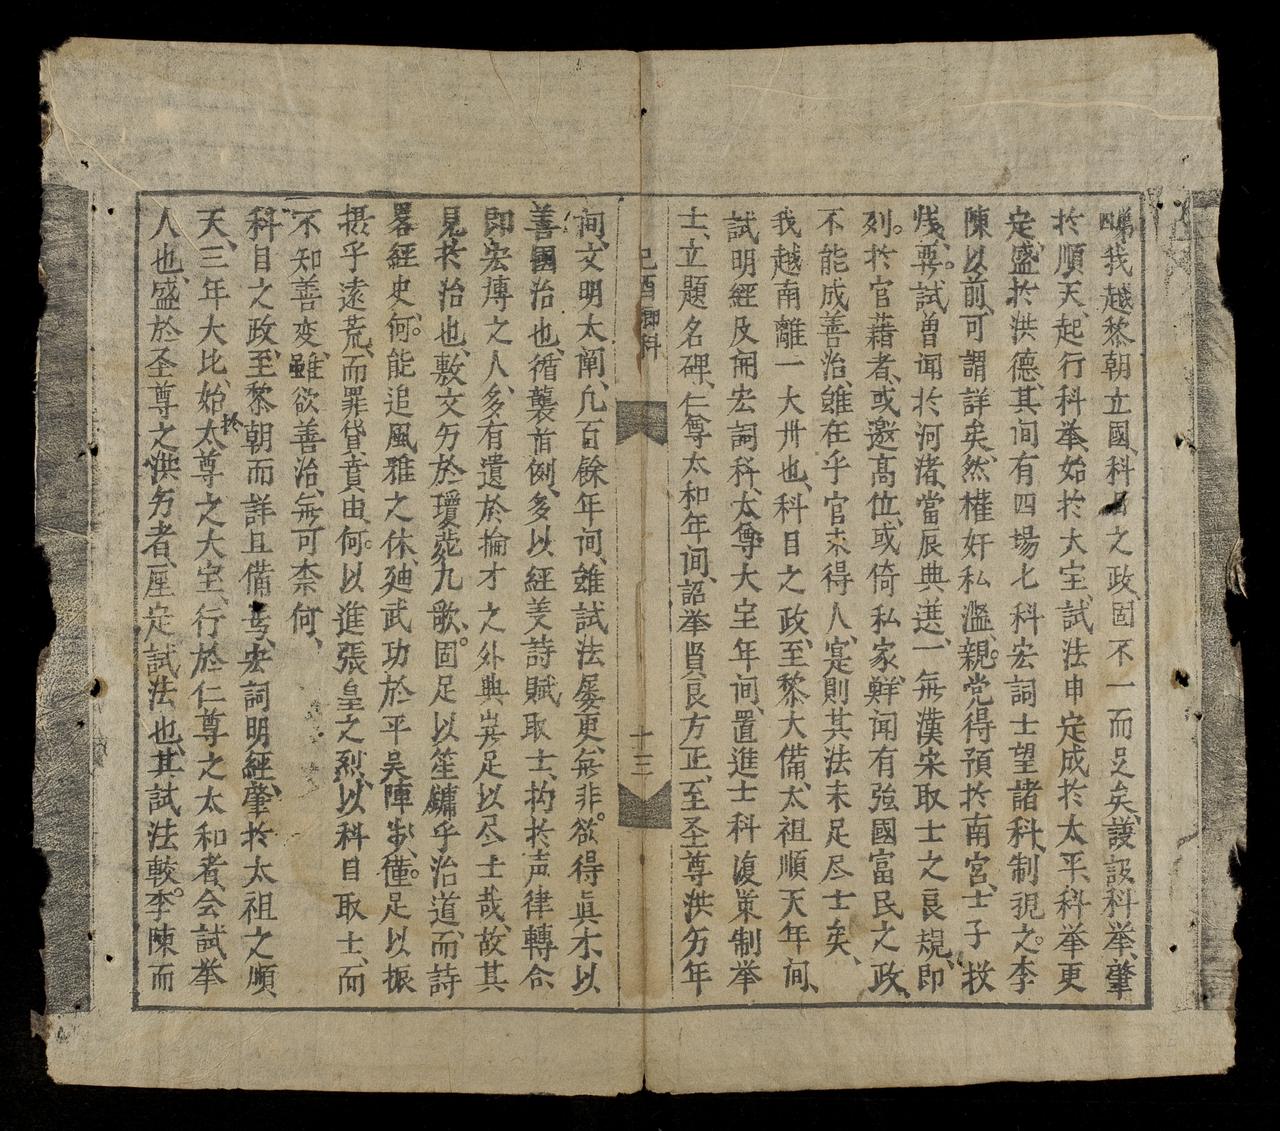 我越黎朝立國科目之政固不一而足矣設科举肇
於順天起行科举始於大宝試法申定成於太平科举更
定盛於洪德其间有四場七科宏詞士望諸科制視之李
陳以前可謂詳矣然權奸私濫親党得預於南宮士子校
試曾闻於河渚當辰典選一無漢宋取士之良規即
列於官藉者或邀高位或倚私家鮮闻有強國富民之政
不能成善治雖在乎官未得人寔則其法未足尽士矣
我越南離一大卅也科目之政至黎大備太祖順天年间
試明經及開宏詞科太尊大宝年间置進士科復策制举
士立題名碑仁尊太和年间詔举賢良方正至圣尊洪㐌年
己酉鄉科
十三
间文明太阐凡百餘年间雖試法屡更無非欲得眞木以
善國治也循襲首例多以經义詩賦取士拘於声律轉合
即宏博之人多有遺於掄才之外典岂足以尽士哉故其
見於治也敷文㐌於瓊葩九歌固足以笙鏞乎治道而詩
畧經史何能追風雅之休廸武功於平吴陣制僅足以振
摄乎遠荒而罪貸賁由何以進張皇之烈以科目取士而
不知善变雖欲善治無可柰何
科目之政至黎朝而詳且備焉宏詞明經肇於太祖之順
天三年大比始於太尊之大宝行於仁尊之太和者会試举
人也盛於圣尊之洪㐌者厘定試法也其試法較李陳而